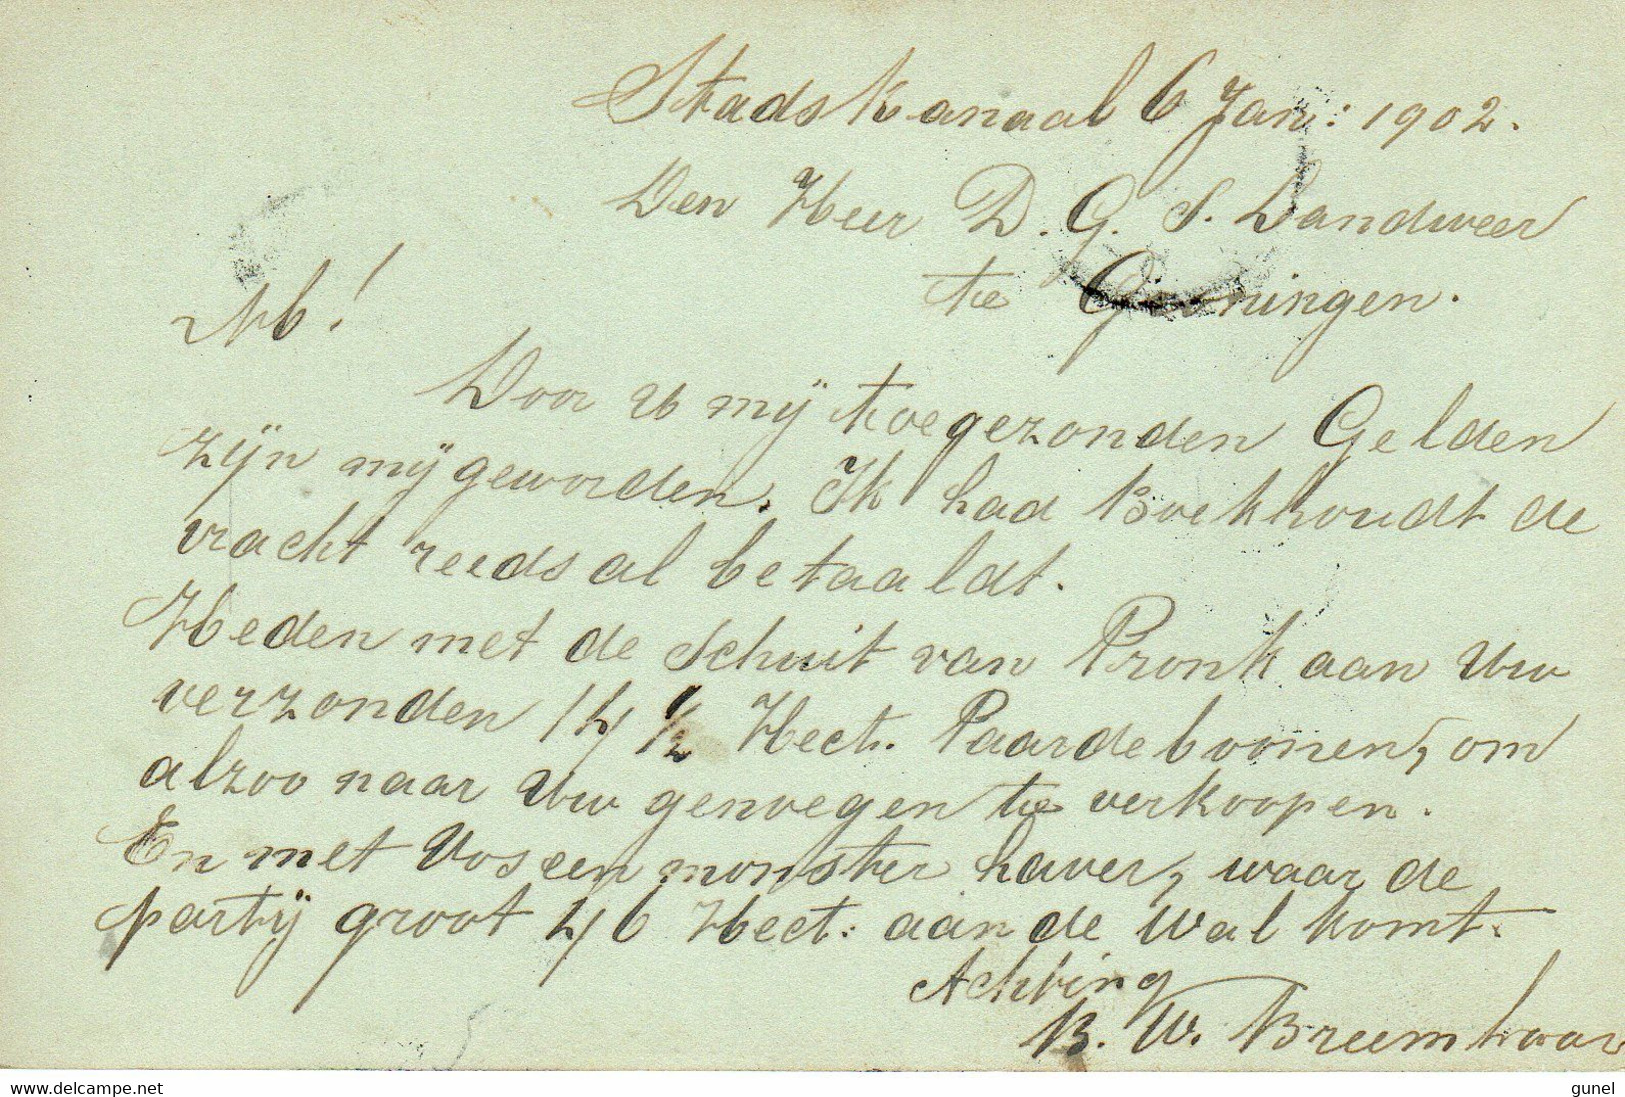 Stadskanaal 6 Jan: 1902.
Den Heer D. G. S. Landweer
te Groningen.
Mb!
Door U mij toegezonden Gelden
zijn mij geworden. Ik had Boekhoudt de
vracht reeds al betaaldt.
Heden met de Schuit van Pronk aan Uw
verzonden 14 1/2 Hect. Paardeboonen, om
alzoo naar Uw genoegen te verkoopen.
En met Vos een monster haver, waar de
partij groot 46 Hect: aan de Wal komt.
Achting
B. W.
www.delcampe.net
gunel